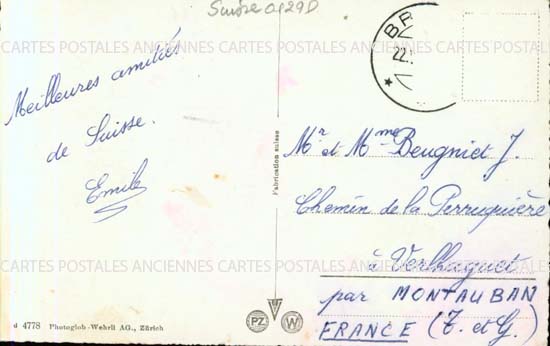 Suisse 0129D
BR
22.
Meilleures amitiés
de Suisse.
Emile
Mr et Mme Beugniet J.
Chemin de la Perruquière
à Verlhaguet
par MONTAUBAN
FRANCE (T. et G.)
Fabrication suisse
d 4778 Photoglob-Wehrli AG., Zürich
PZ W
CARTES POSTALES ANCIENNES CARTES POSTALES ANCIENNES CARTES POSTALES
CARTES POSTALES ANCIENNES CARTES POSTALES ANCIENNES CARTES POSTALES